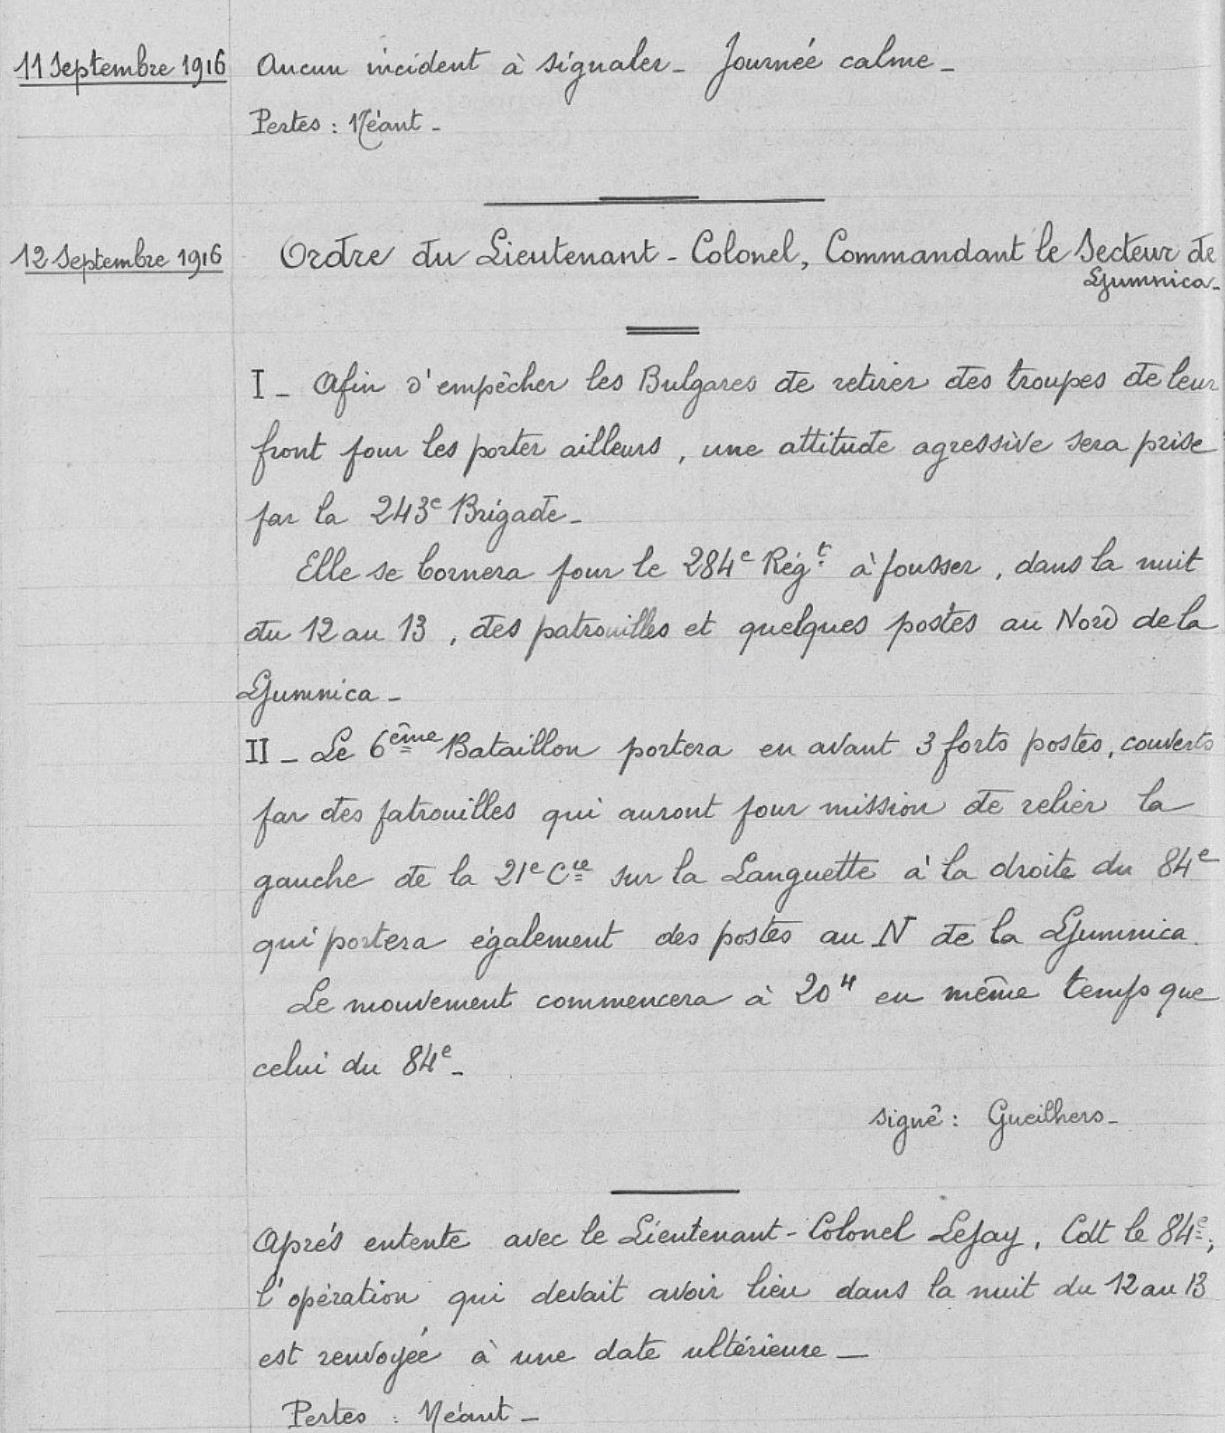 11 Septembre 1916 Aucun incident à signaler - Journée calme -
Pertes : Néant -
12 Septembre 1916 Ordre du Lieutenant - Colonel, Commandant le Secteur de
Ljumnica -
I - Afin d'empêcher les Bulgares de retirer des troupes de leur
front pour les porter ailleurs, une attitude agressive sera prise
par la 243e Brigade -
Elle se bornera pour le 284e Régt à pousser, dans la nuit
du 12 au 13, des patrouilles et quelques postes au Nord de la
Ljumnica -
II - Le 6ème Bataillon portera en avant 3 forts postes, couverts
par des patrouilles qui auront pour mission de relier la
gauche de la 21e Cie sur la Languette à la droite du 84e
qui portera également des postes au N de la Ljumnica.
Le mouvement commencera à 20H en même temps que
celui du 84e -
signé : Gueilhers -
Après entente avec le Lieutenant - Colonel Lejay, Cdt le 84e,
l'opération qui devait avoir lieu dans la nuit du 12 au 13
est renvoyée à une date ultérieure -
Pertes : Néant -